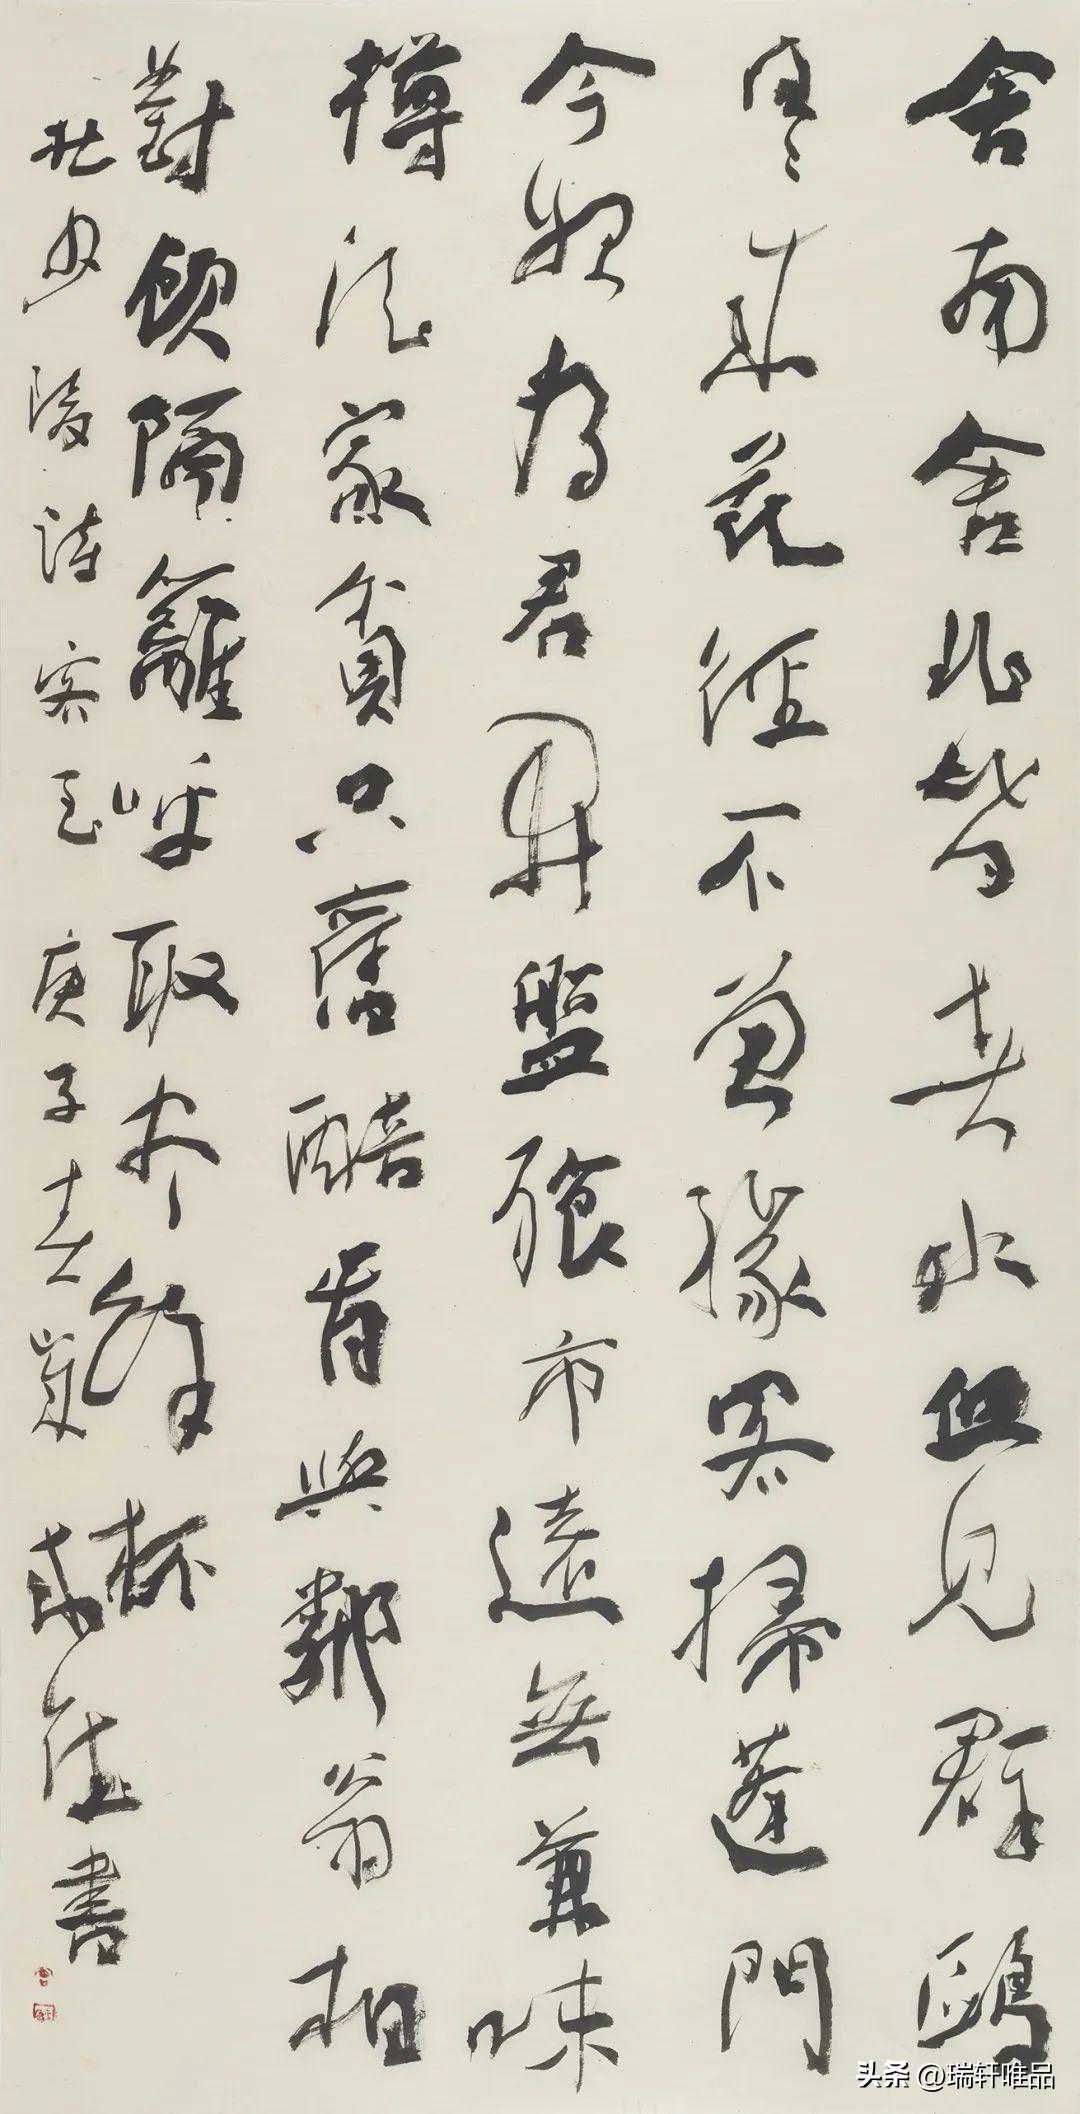 舍南舍北皆春水但見群鷗
日〻來花徑不曾緣客掃蓬門
今始為君開盤飱市遠無兼味
樽酒家貧只舊醅肯與鄰翁相
對飲隔籬呼取盡餘杯
杜少陵詩客至庚子春書
头条 @瑞轩唯品